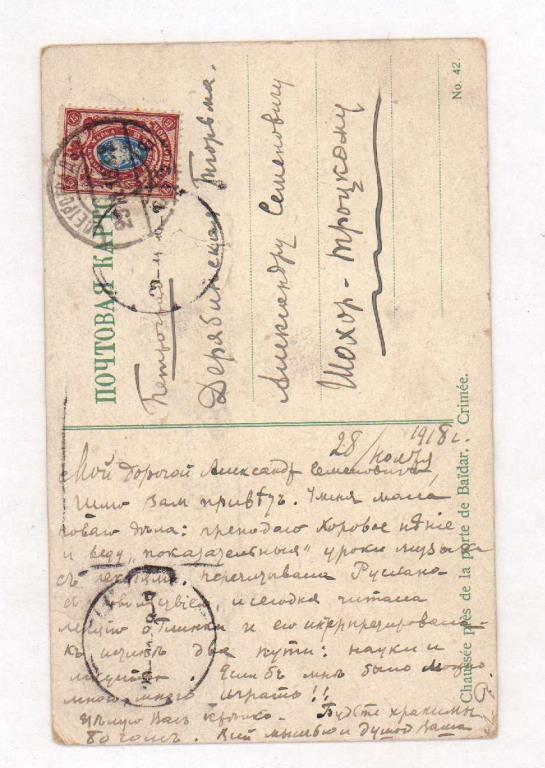 ПОЧТОВАЯ КАРТО
No. 42.
Петроград
Дерябинская Тюрьма.
Александру Семеновичу
Шохор-Троцкому
Chaussée près de la porte de Baïdar. Crimée.
28/ноября 1918 г.
Мой дорогой Александр Семенович,
Шлю Вам привѣтъ. У меня масса
новаго дѣла: преподаю хоровое пѣніе
и веду „показательныя" уроки музыки
съ лекціями. Руслана
и сегодня читала
лекцію о Глинкѣ и его
два пути: науки и
. Если бъ мнѣ было можно
много много играть!!
Цѣлую Васъ крѣпко. Будьте хранимы
Богомъ. мыслью и душой Ваша